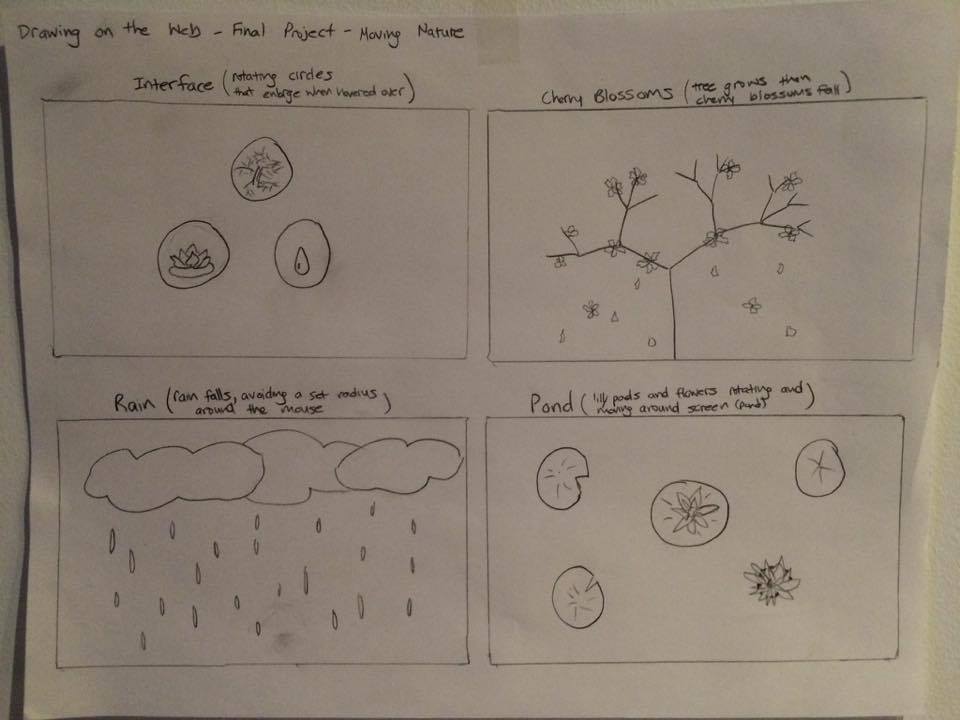 Drawing on the Web - Final Project - Moving Nature
Interface (rotating circles
that enlarge when hovered over)
Cherry Blossoms (tree grows then
cherry blossums fall)
Rain (rain falls, avoiding a set radius
around the mouse)
Pond (lilly pads and flowers rotating and
moving around screen (pond))